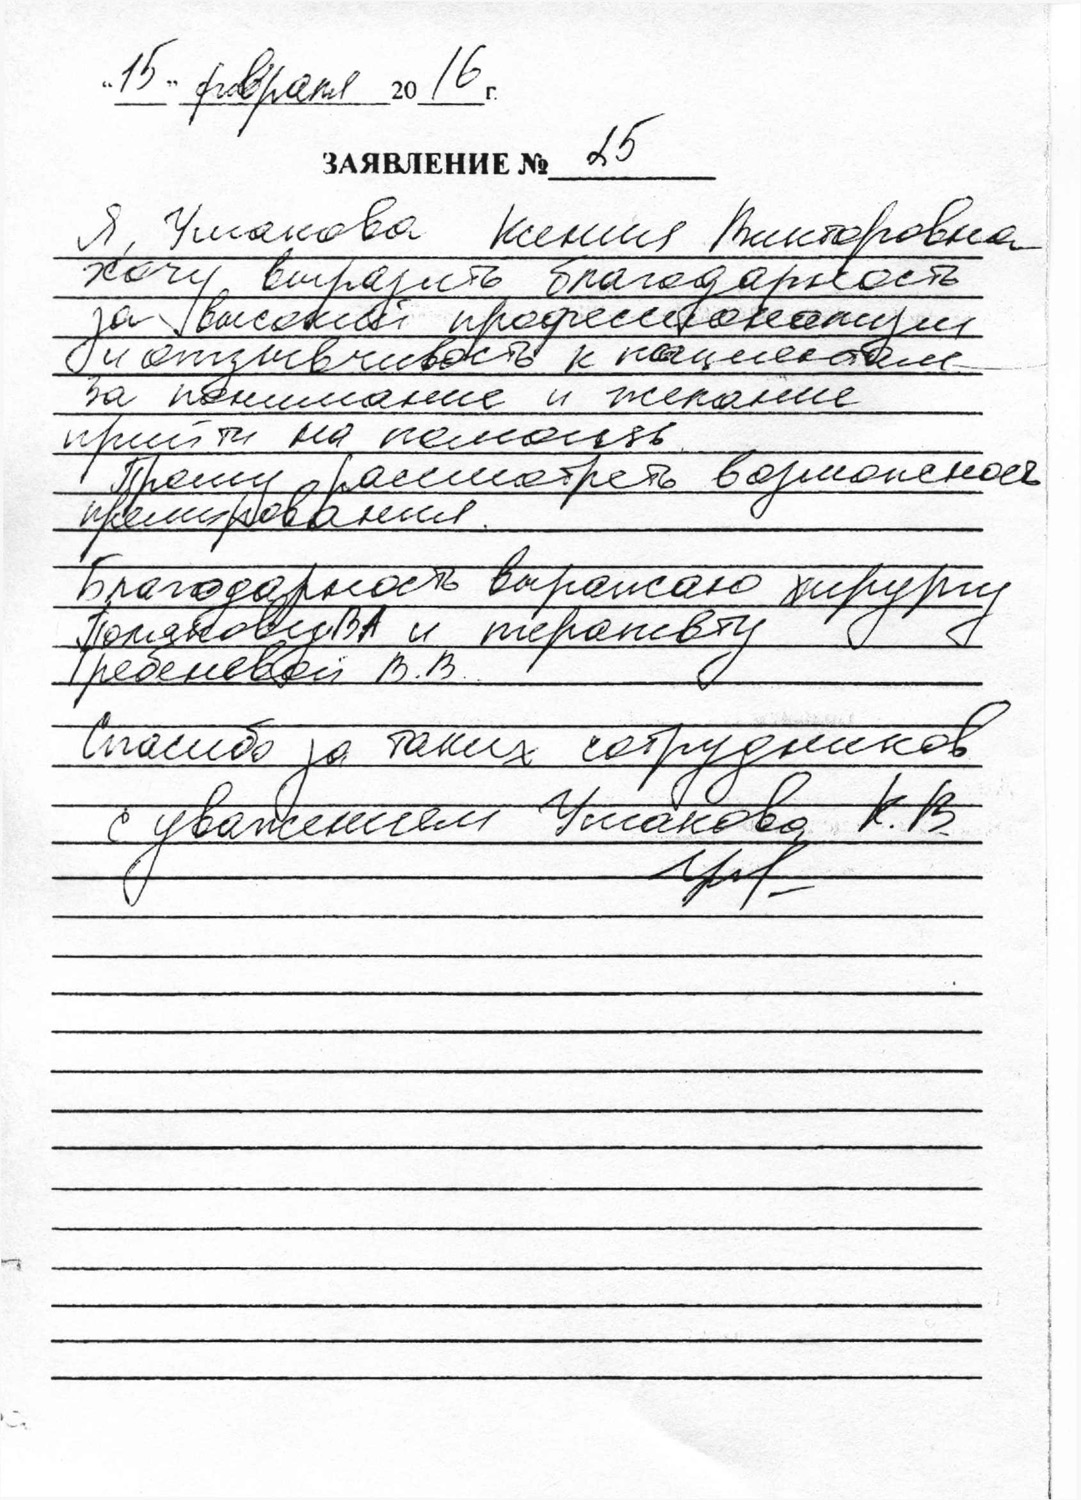 "15" февраля 2016 г.
ЗАЯВЛЕНИЕ № 25
Я, Ушакова Ксения Викторовна
хочу выразить благодарность
за высокий профессионализм
и отзывчивость к пациентам
за понимание и желание
прийти на помощь.
Прошу рассмотреть возможность
премирования.
Благодарность выражаю хирургу
Полякову ВА и терапевту
Гребеневой В.В.
Спасибо за таких сотрудников
с уважением Ушакова К.В.